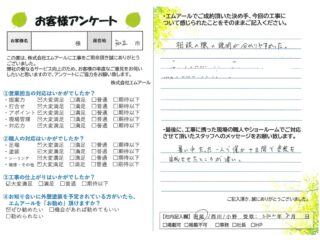 お客様アンケート
お客様名
様
居住地
知立 市
この度は、株式会社エムアールに工事をご用命頂き誠にありがとうございました。
弊社の更なるサービス向上のため、お客様の率直なご意見をお伺いしたいと思いますので、アンケートにご協力をお願い致します。
株式会社エムアール
①営業担当の対応はいかがでしたか？
・提案力 ☑大変満足 □満足 □普通 □期待以下
・打合せ ☑大変満足 □満足 □普通 □期待以下
・アポイント ☑大変満足 □満足 □普通 □期待以下
・現場管理 ☑大変満足 □満足 □普通 □期待以下
・対応力 ☑大変満足 □満足 □普通 □期待以下
②職人の対応はいかがでしたか？
・足場 ☑大変満足 □満足 □普通 □期待以下
・塗装 ☑大変満足 □満足 □普通 □期待以下
・シーリング □大変満足 □満足 □普通 □期待以下
・補修・その他 □大変満足 □満足 □普通 □期待以下
③工事の仕上がりはいかがでしたか？
☑大変満足 □満足 □普通 □期待以下
④お知り合いに外壁塗装を予定されている方がいたら、
エムアールを【お勧め】頂けますか？
☑ぜひ勧めたい □機会があれば勧めてもいい
□勧められない
・エムアールでご成約頂いた決め手、今回の工事について感じられたことをそのままご記入ください。
相談の際の説明がわかりやすかった。
・最後に、工事に携った現場の職人やショールームでご対応させて頂いたスタッフへのメッセージをお願い致します。
暑い中
ご記入頂き、誠にありがとうございました。
【社内記入欄】
□掲載可 □掲載不可 □予定 □事務 □社長 □HP